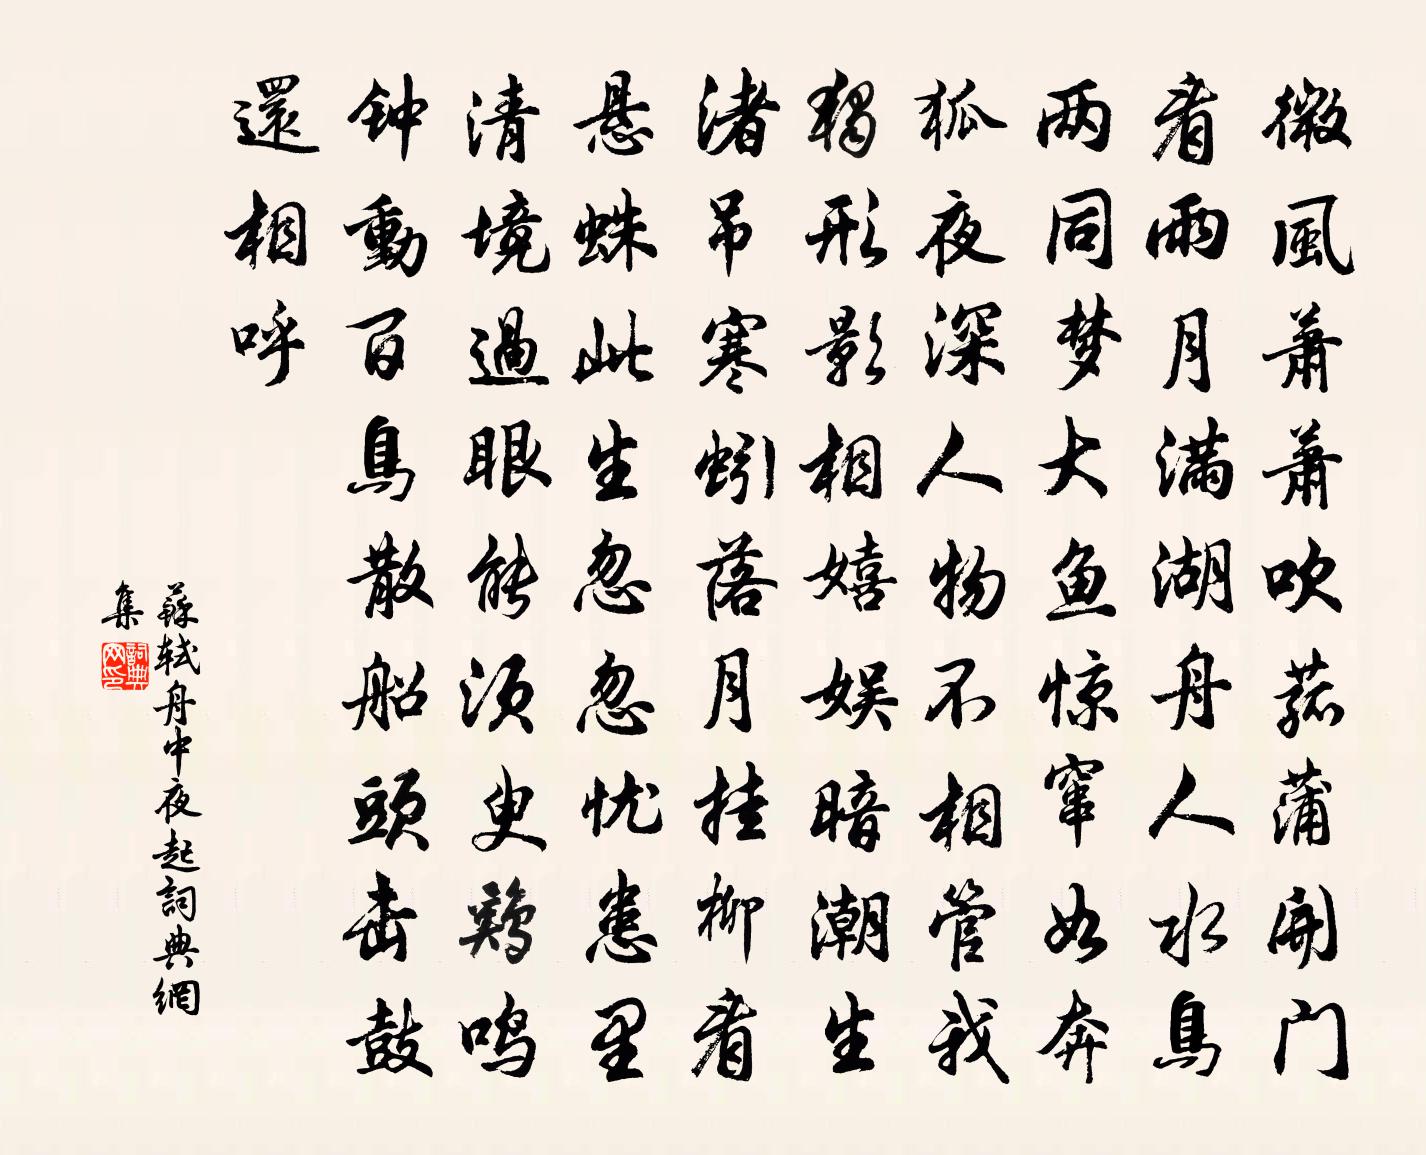 微風萧萧吹菰蒲開门
看雨月满湖舟人水鳥
两同梦大鱼惊窜如奔
狐夜深人物不相管我
獨形影相嬉娱暗潮生
渚吊寒蚓落月挂柳看
悬蛛此生忽忽忧患里
清境過眼能须臾鷄鸣
钟動百鳥散船頭击鼓
還相呼
蘇轼舟中夜起詞典網
集
詞典网印